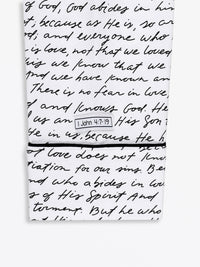 God, God abides in hi
t, because as He is, so ar
d, and everyone who
is love, not that we loved
his we know that we
And we have known an
There is no fear in love
d and knows God. He
d us an His Son i
1 John 4:7-19
He in us, because He h
t love does not kno
tiation for our sins. Be
nd who abides in lov
s of His Spirit. And
torment. But he who